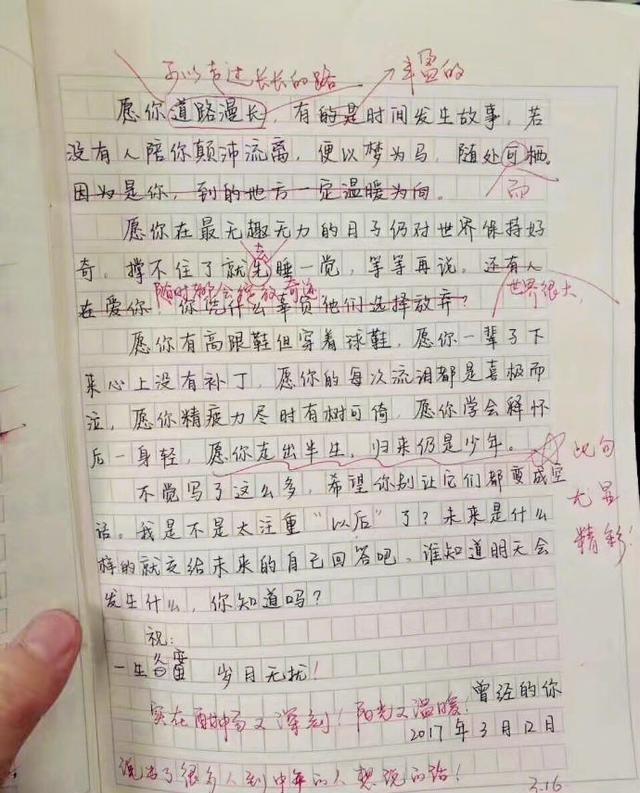 可以走过长长的路 丰盈的
愿你道路漫长，有的是时间发生故事，若
没有人陪你颠沛流离，便以梦为马，随处可栖。
因为是你，到的地方一定温暖为向。 而
愿你在最无趣无力的日子仍对世界保持好
去
奇。撑不住了就先睡一觉，等等再说。还有人
随时都会绽放奇迹 世界很大，
在爱你 你凭什么辜负他们选择放弃？
愿你有高跟鞋但穿着球鞋，愿你一辈子下
来心上没有补丁，愿你的每次流泪都是喜极而
泣，愿你精疲力尽时有树可倚，愿你学会释怀
后一身轻，愿你走出半生，归来仍是少年。
此句
尤显
精彩！
不觉写了这么多，希望你别让它们都变成空
话。我是不是太注重“以后”了？未来是什么
样的就交给未来的自己回答吧，谁知道明天会
发生什么，你知道吗？
祝：
一生 岁月无扰！
曾经的你
实在 又深刻！阳光又温暖！
2017年3月12日
说出了很多人到中年的人想说的话！
3.16